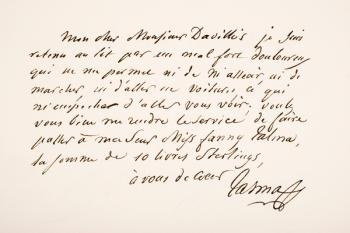 Mon cher Monsieur Davillis je suis
retenu au lit par un mal fort douloureux
qui ne me permet ni de m'asseoir, ni de
marcher ni d'aller en voiture, ce qui
m'empêcher d'aller vous voir; voulez
vous bien me rendre le service de faire
passer à ma Sœur Miss fanny Talma,
la somme de 10 livres Sterlings,
à vous de cœur
Talma